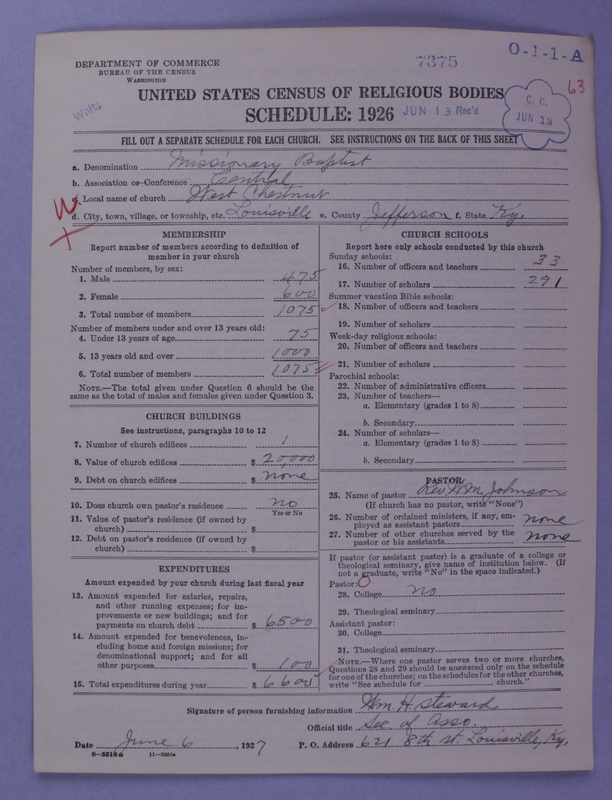 DEPARTMENT OF COMMERCE
BUREAU OF THE CENSUS
WASHINGTON
7375
O-1-1-A
63
White
UNITED STATES CENSUS OF RELIGIOUS BODIES
SCHEDULE: 1926
JUN 13 Rec'd
C. C.
JUN 13
FILL OUT A SEPARATE SCHEDULE FOR EACH CHURCH. SEE INSTRUCTIONS ON THE BACK OF THIS SHEET
a. Denomination Missionary Baptist
b. Association or Conference Central
c. Local name of church West Chestnut
d. City, town, village, or township, etc. Louisville e. County Jefferson f. State Ky.
MEMBERSHIP
Report number of members according to definition of
member in your church
Number of members, by sex:
1. Male 475
2. Female 600
3. Total number of members 1075
Number of members under and over 13 years old:
4. Under 13 years of age 75
5. 13 years old and over 1000
6. Total number of members 1075
NOTE.—The total given under Question 6 should be
same as the total of males and females given under Question 3.
CHURCH BUILDINGS
See instructions, paragraphs 10 to 12
7. Number of church edifices 1
8. Value of church edifices $ 20,000
9. Debt on church edifices $ none
10. Does church own pastor's residence no
Yes or No
11. Value of pastor's residence (if owned by
church) $
12. Debt on pastor's residence (if owned by
church) $
EXPENDITURES
Amount expended by your church during last fiscal year
13. Amount expended for salaries, repairs,
and other running expenses; for im-
provements or new buildings; and for
payments on church debt $ 6500
14. Amount expended for benevolences, in-
cluding home and foreign missions; for
denominational support; and for all
other purposes $ 100
15. Total expenditures during year $ 6600
CHURCH SCHOOLS
Report here only schools conducted by this church
Sunday schools:
16. Number of officers and teachers 33
17. Number of scholars 291
Summer vacation Bible schools:
18. Number of officers and teachers
19. Number of scholars
Week-day religious schools:
20. Number of officers and teachers
21. Number of scholars
Parochial schools:
22. Number of administrative officers
23. Number of teachers—
a. Elementary (grades 1 to 8)
b. Secondary
24. Number of scholars—
a. Elementary (grades 1 to 8)
b. Secondary
PASTOR
25. Name of pastor Rev. W.M. Johnson
(If church has no pastor, write "None")
26. Number of ordained ministers, if any, em-
ployed as assistant pastors none
27. Number of other churches served by the
pastor or his assistants none
If pastor (or assistant pastor) is a graduate of a college or
theological seminary, give name of institution below. (If
not a graduate, write "No" in the space indicated.)
Pastor:
28. College no
29. Theological seminary
Assistant pastor:
30. College
31. Theological seminary
NOTE.—Where one pastor serves two or more churches,
Questions 28 and 29 should be answered only on the schedule
for one of the churches; on the schedules for the other churches,
write "See schedule for church."
Signature of person furnishing information Wm. H. Steward
Official title Sec. of Asso.
Date June 6, 1927 P. O. Address 621 8th st. Louisville, Ky.